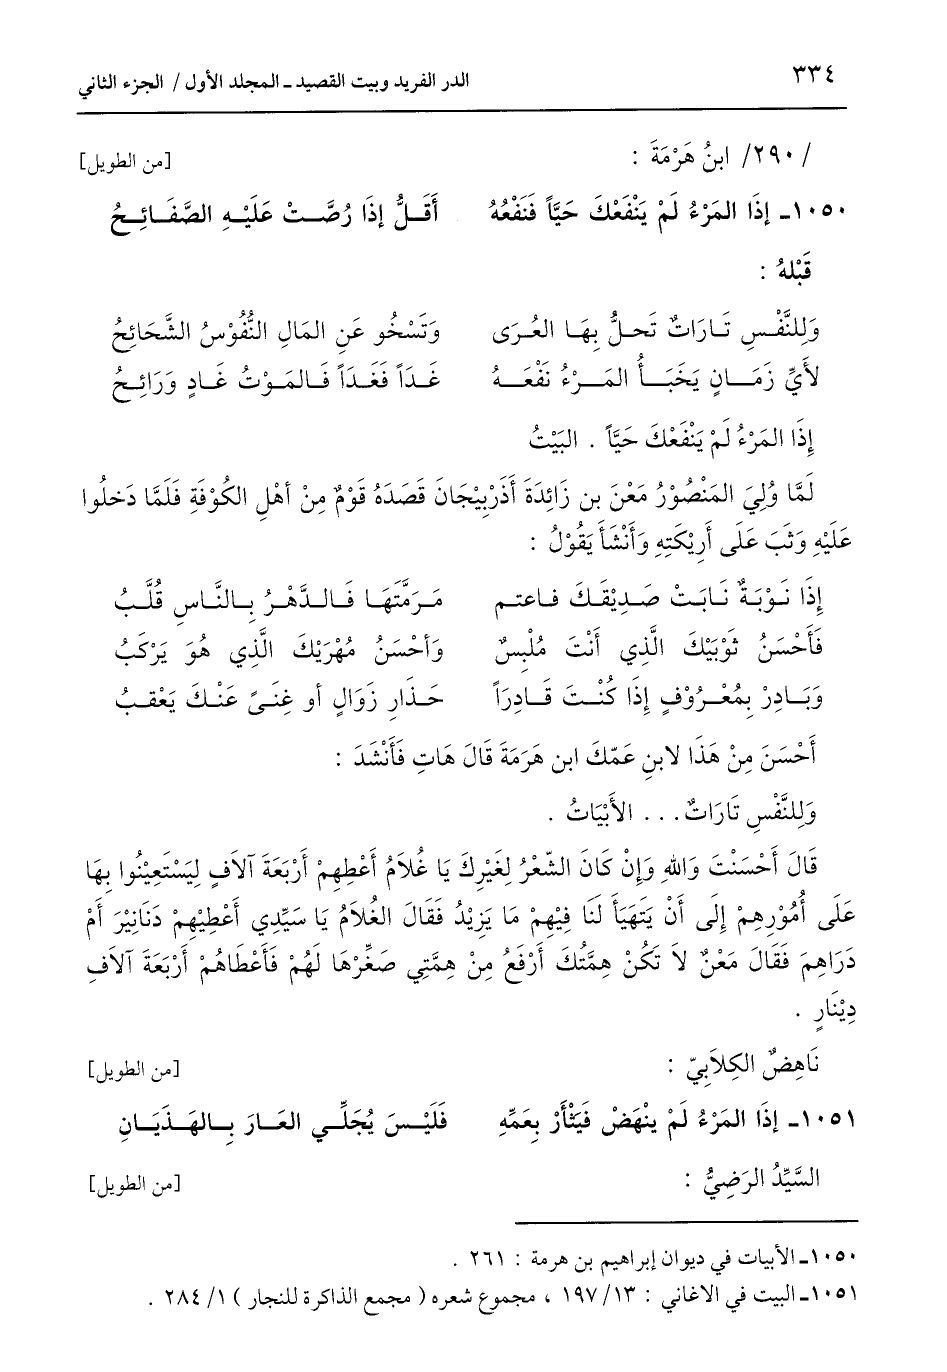 ٣٣٤ الدر الفريد وبيت القصيد ـ المجلد الأول / الجزء الثاني
/ ٢٩٠/ ابنُ هَرْمَةَ : [من الطويل]
١٠٥٠ـ إذَا المَرْءُ لَمْ يَنْفَعْكَ حَيَّاً فَنَفْعُهُ أَقَلُّ إذَا رُصَّتْ عَلَيْهِ الصَّفَائِحُ
قَبْلهُ :
وَلِلنَّفْسِ تَارَاتٌ تَحلُّ بِهَا العُرَى وَتَسْخُو عَنِ المَالِ النُّفُوْسُ الشَّحَائِحُ
لأَيِّ زَمَانٍ يَخَبَأُ المَرْءُ نَفْعَهُ غَدَاً فَغَدَاً فَالمَوْتُ غَادٍ وَرَائِحُ
إذَا المَرْءُ لَمْ يَنْفَعْكَ حَيَّاً . البَيْتُ
لَمَّا وُلِيَ المَنْصُوْرُ مَعْنَ بن زَائِدَةَ أَذَرْبِيْجَانَ قَصَدَهُ قَوْمٌ مِنْ أهْلِ الكُوْفَةِ فَلَمَّا دَخلُوا
عَلَيْهِ وَثَبَ عَلَى أَرِيْكَتِهِ وَأَنْشَأَ يَقُوْلُ :
إذَا نَوْبَةٌ نَابَتْ صَدِيْقَكَ فاعتم مَرَمَّتَهَا فَالدَّهْرُ بِالنَّاسِ قُلَّبُ
فَأَحْسَنُ ثَوْبَيْكَ الَّذِي أَنْتَ مُلْبِسٌ وَأحْسَنُ مُهْرَيْكَ الَّذِي هُوَ يَرْكَبُ
وَبَادِرْ بِمُعْرُوْفٍ إذَا كُنْتَ قَادِرَاً حَذَارِ زَوَالٍ أو غِنَىً عَنْكَ يَعْقبُ
أَحْسَنَ مِنْ هَذَا لابنِ عَمّكَ ابن هَرَمَةَ قَالَ هَاتِ فَأَنْشَدَ :
وَلِلنَّفْسِ تَارَاتٌ... الأَبْيَاتُ .
قَالَ أَحْسَنْتَ وَاللهِ وَإنْ كَانَ الشّعْرُ لِغَيْرِكَ يَا غُلَامُ أَعْطِهِمْ أَرْبَعَةَ آلَافٍ لِيَسْتَعِيْنُوا بِهَا
عَلَى أُمُوْرِهِمْ إلَى أَنْ يَتَهَيَأَ لَنَا فِيْهِمْ مَا يَزِيْدُ فَقَالَ الغُلَامُ يَا سَيِّدِي أَعْطِيْهِمْ دَنَانِيْرَ أَمْ
دَرَاهِمَ فَقَالَ مَعْنٌ لَا تَكُنْ هِمَّتُكَ أَرْفَعُ مِنْ هِمَّتِي صَغِّرْهَا لَهُمْ فَأَعْطَاهُمْ أَرْبَعَةَ آلَافِ
دِيْنَارٍ .
نَاهِضٌ الكِلَابِيّ : [من الطويل]
١٠٥١ـ إذَا المَرْءُ لَمْ يِنْهَضْ فَيَثْأَرْ بِعَمِّهِ فَلَيْسَ يُجَلِّي العَارَ بِالهَذَيَانِ
السَّيِّدُ الرَضِيُّ : [من الطويل]
١٠٥٠ـ الأبيات في ديوان إبراهيم بن هرمة : ٢٦١ .
١٠٥١ـ البيت في الاغاني : ١٣/ ١٩٧ ، مجموع شعره ( مجمع الذاكرة للنجار ) ١/ ٢٨٤ .